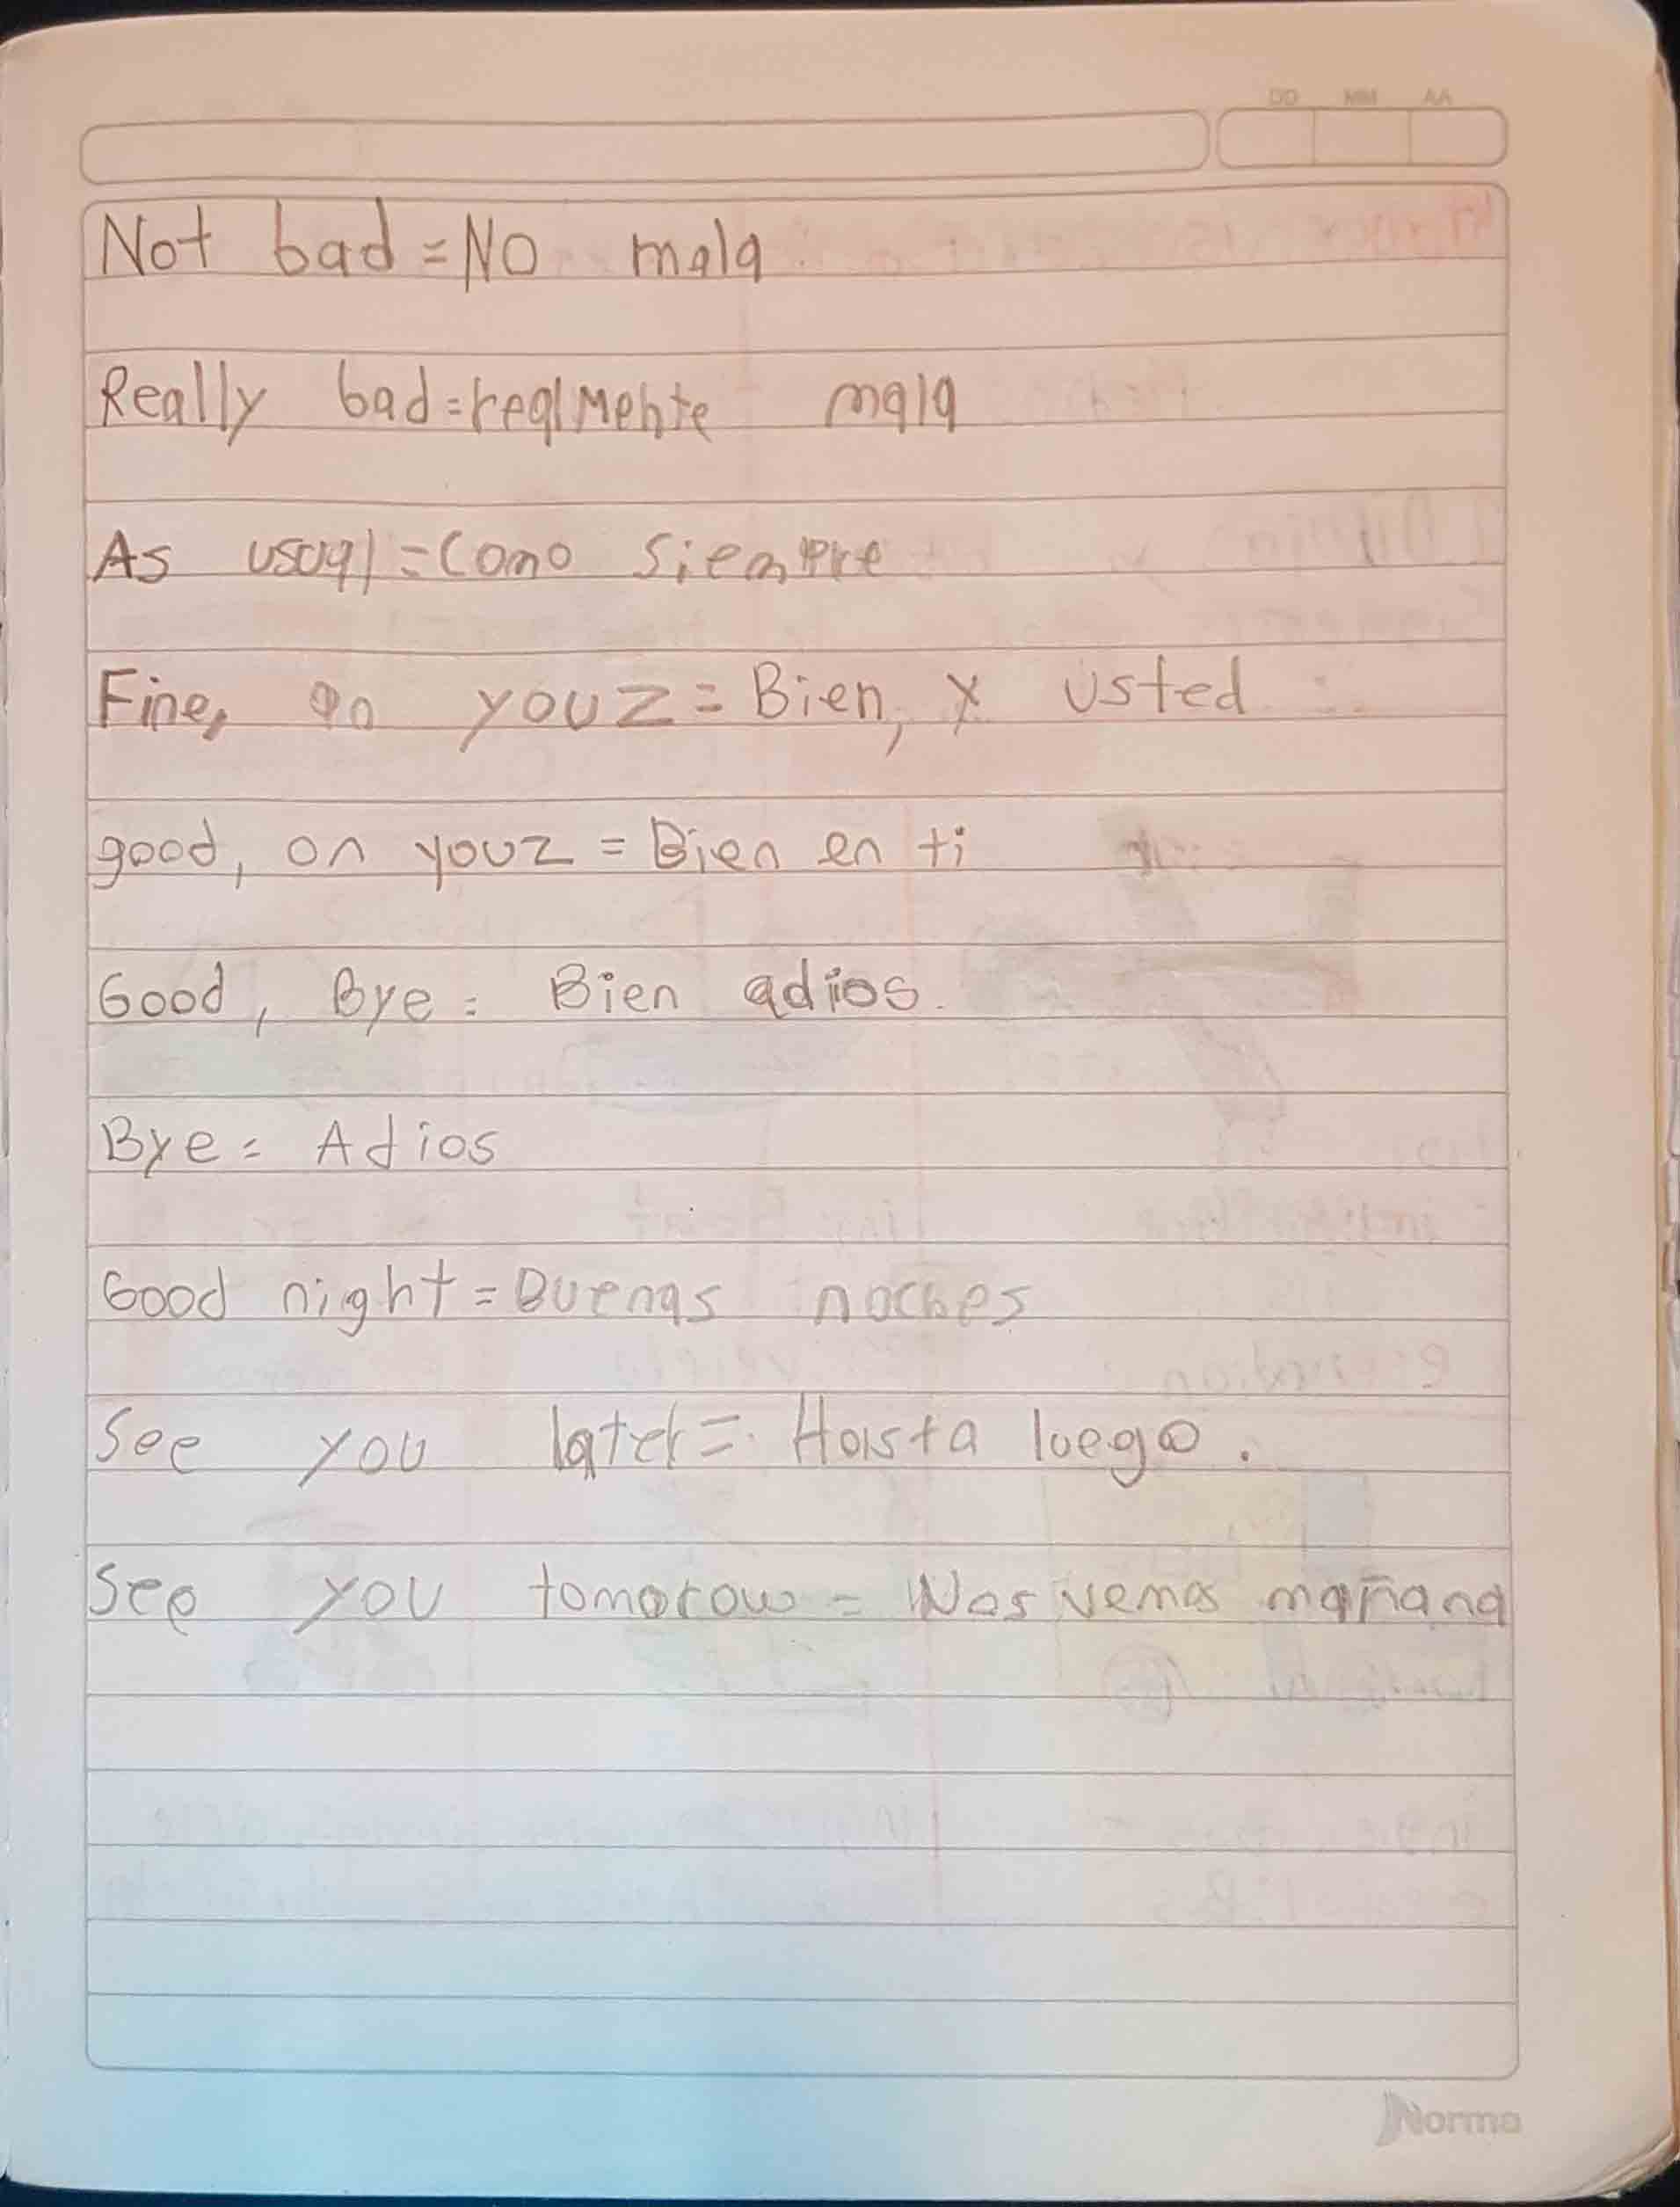 DD MM AA
Not bad = No mala
Really bad = realmente mala
As usual = Como Siempre
Fine, on youz = Bien, y usted
good, on youz = Bien en ti
Good, Bye = Bien adios.
Bye = Adios
Good night = Buenas noches
See you later = Hasta luego.
See you tomorow = Nos vemos mañana
Norma